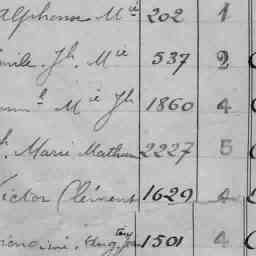 Alphonse Mie 202 1
Jh. Mie 537 2
Mie Jh 1860 4
Marie Mathur 2227 5
Victor Clément 1629 4
Aug. 1501 4